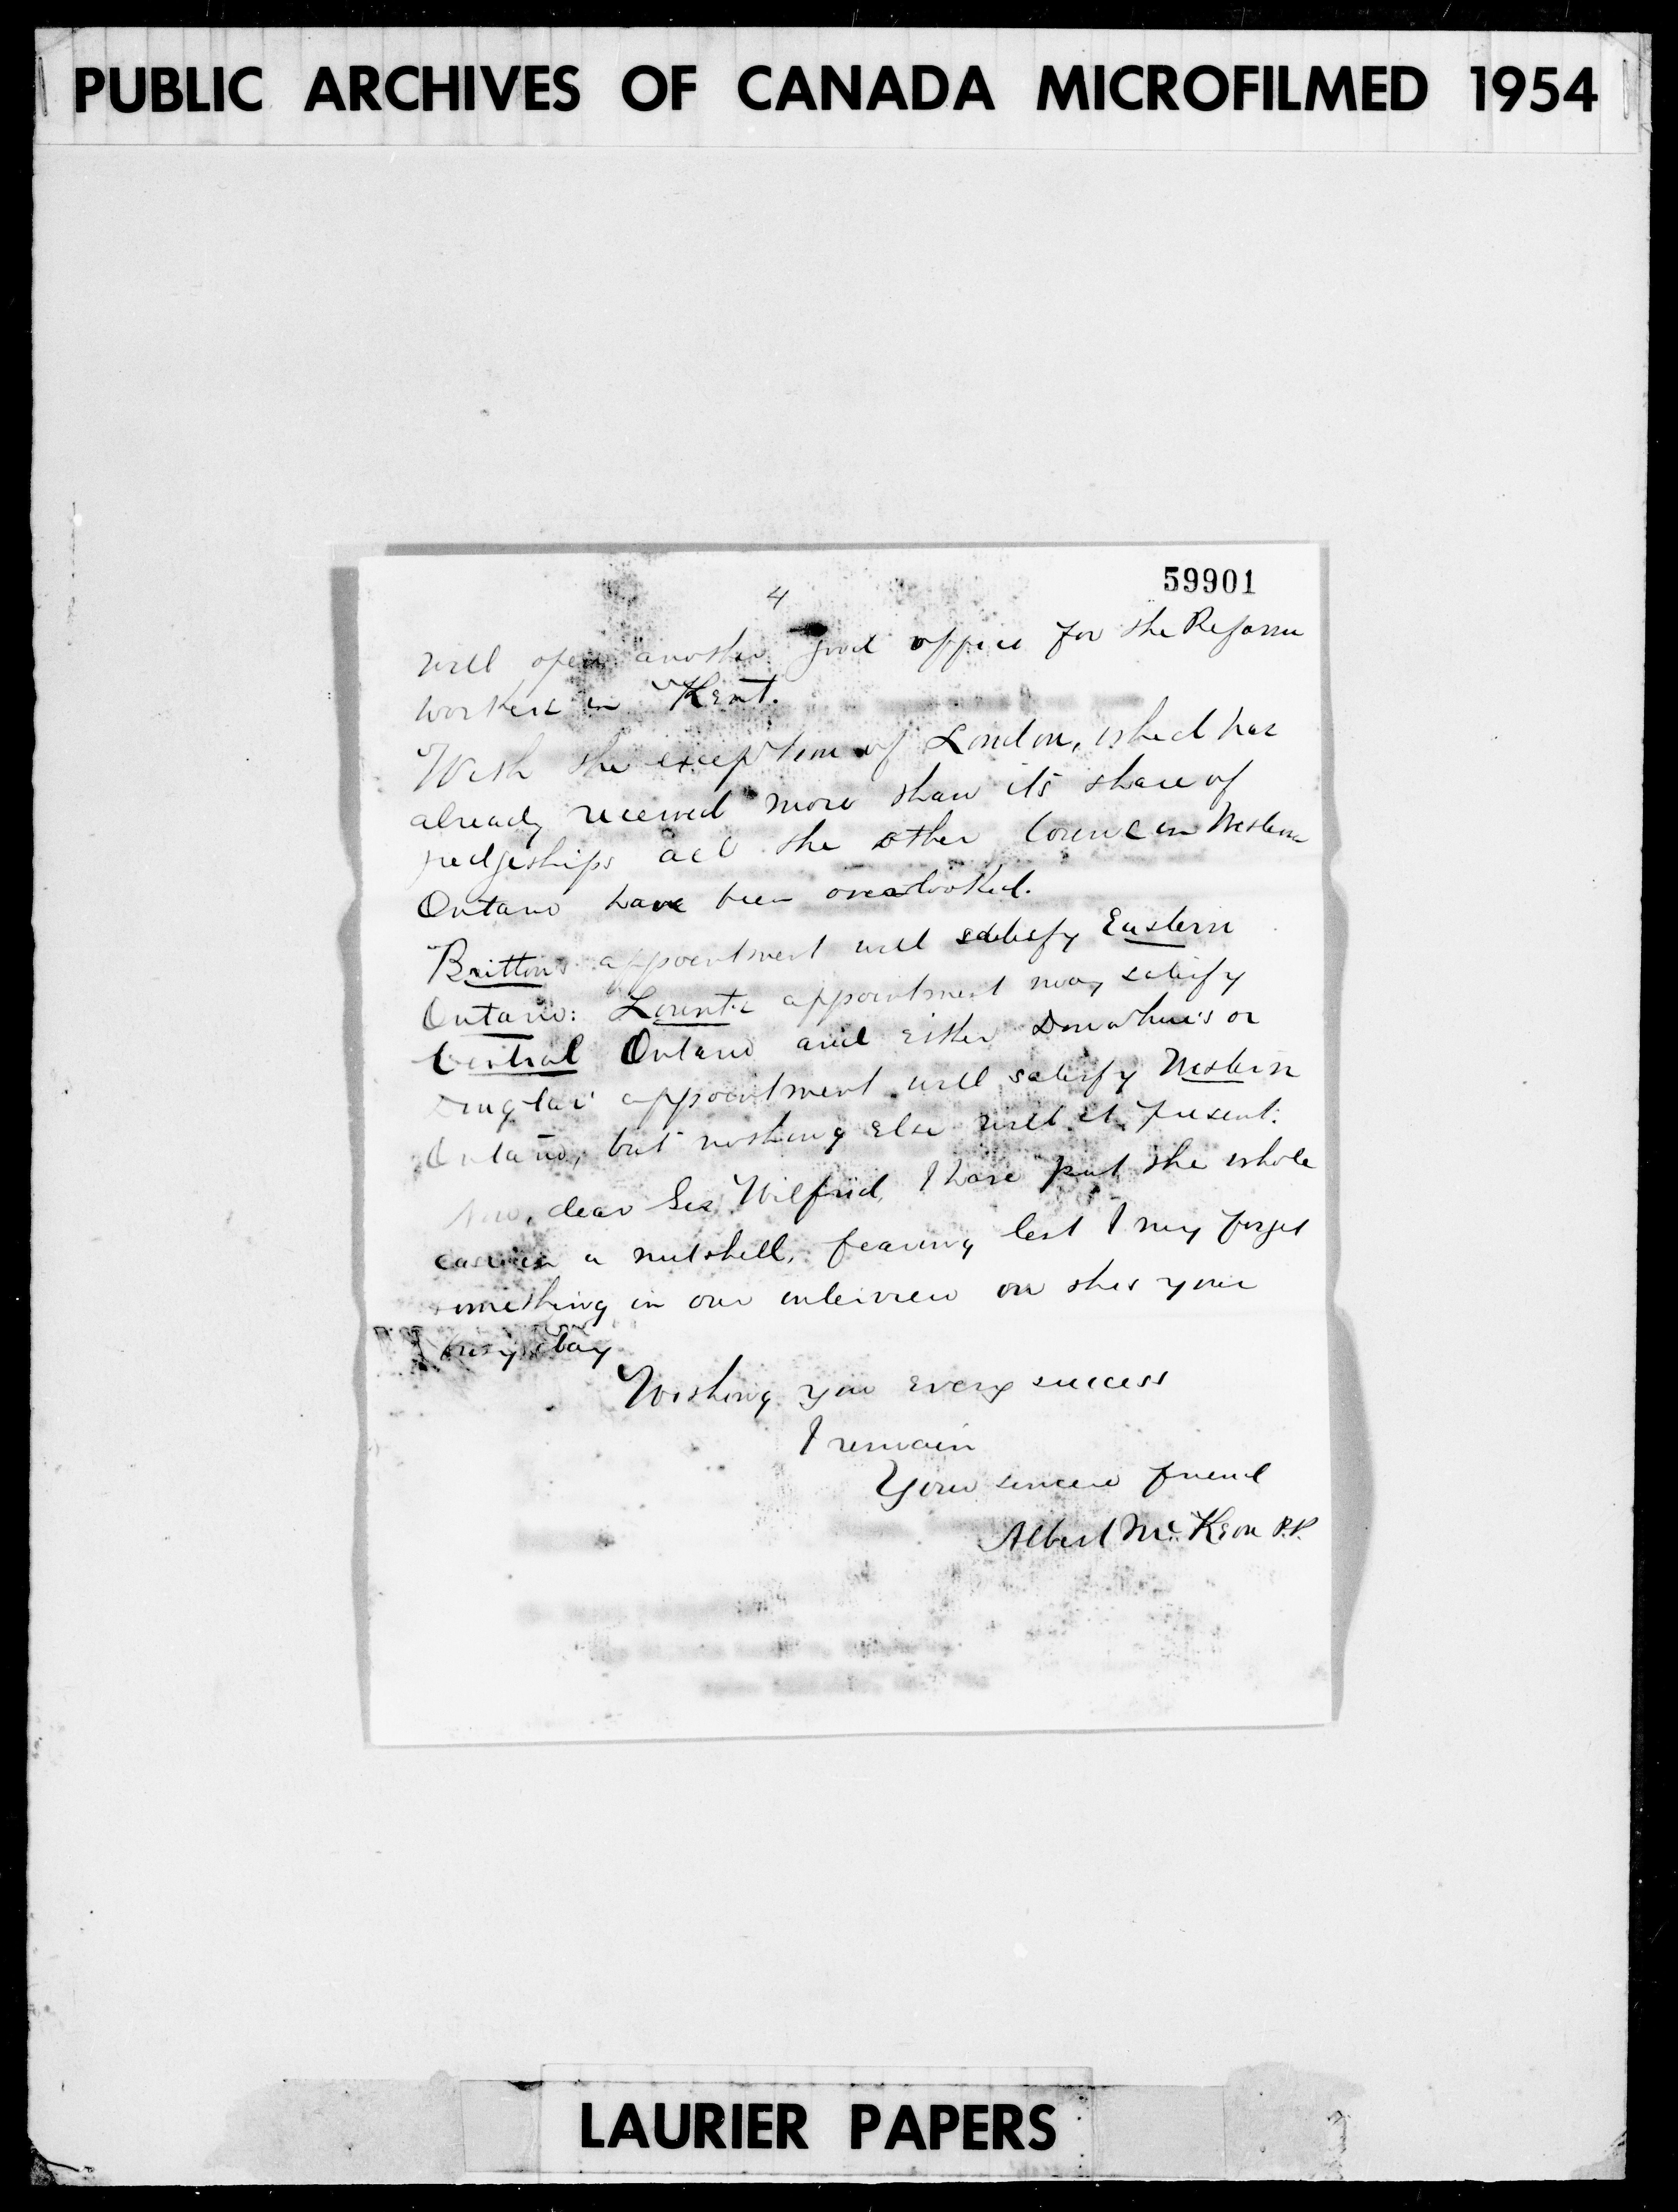 PUBLIC ARCHIVES OF CANADA MICROFILMED 1954
59901
4
will open another good office for the Reform
workers in Kent.
With the exception of London, which has
already received more than its share of
judgeships all the other towns in Western
Ontario have been overlooked.
Britton's appointment will satisfy Eastern
Ontario: Lount's appointment may satisfy
Central Ontario and either Donahue's or
Douglas' appointment will satisfy Western
Ontario, but nothing else will at present.
Now, dear Sir Wilfrid, I have put the whole
case in a nutshell, fearing lest I may forget
something in our interview on this your
busy day
Wishing you every success
I remain
Your sincere friend
Albert McKeon P.P.
LAURIER PAPERS